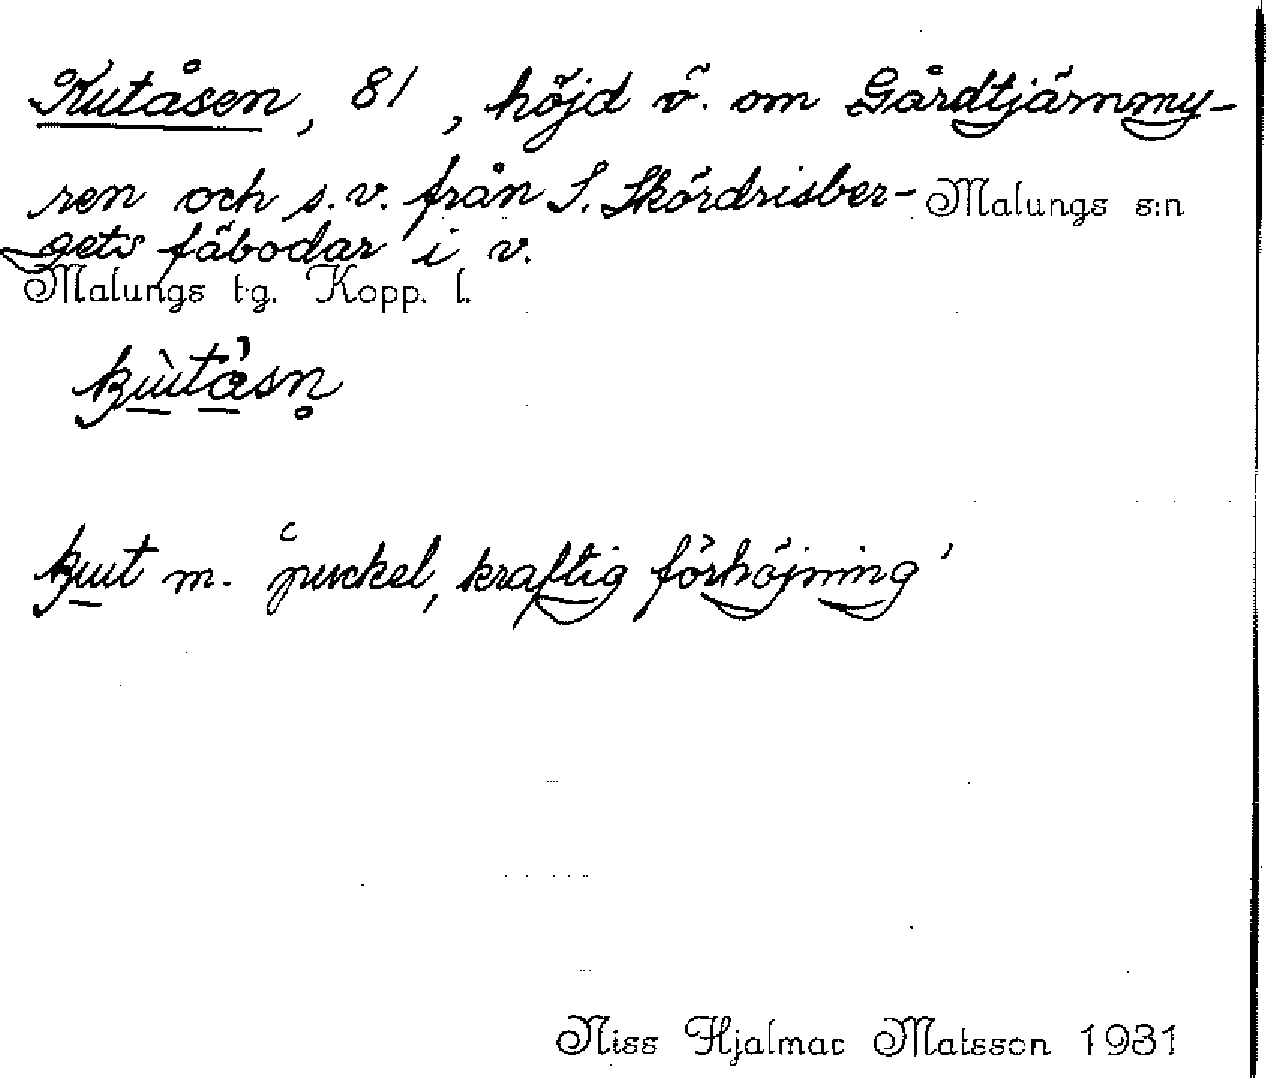 Kutåsen, 81, höjd ö. om Gårdtjärnmy-
ren och s.v. från S. Skördrisber-
Malungs s:n
gets fäbodar i v.
Malungs tg. Kopp. l.
kùtàsn̥
kut m. ʿpuckel, kraftig förhöjningʾ
Niss Hjalmar Matsson 1931